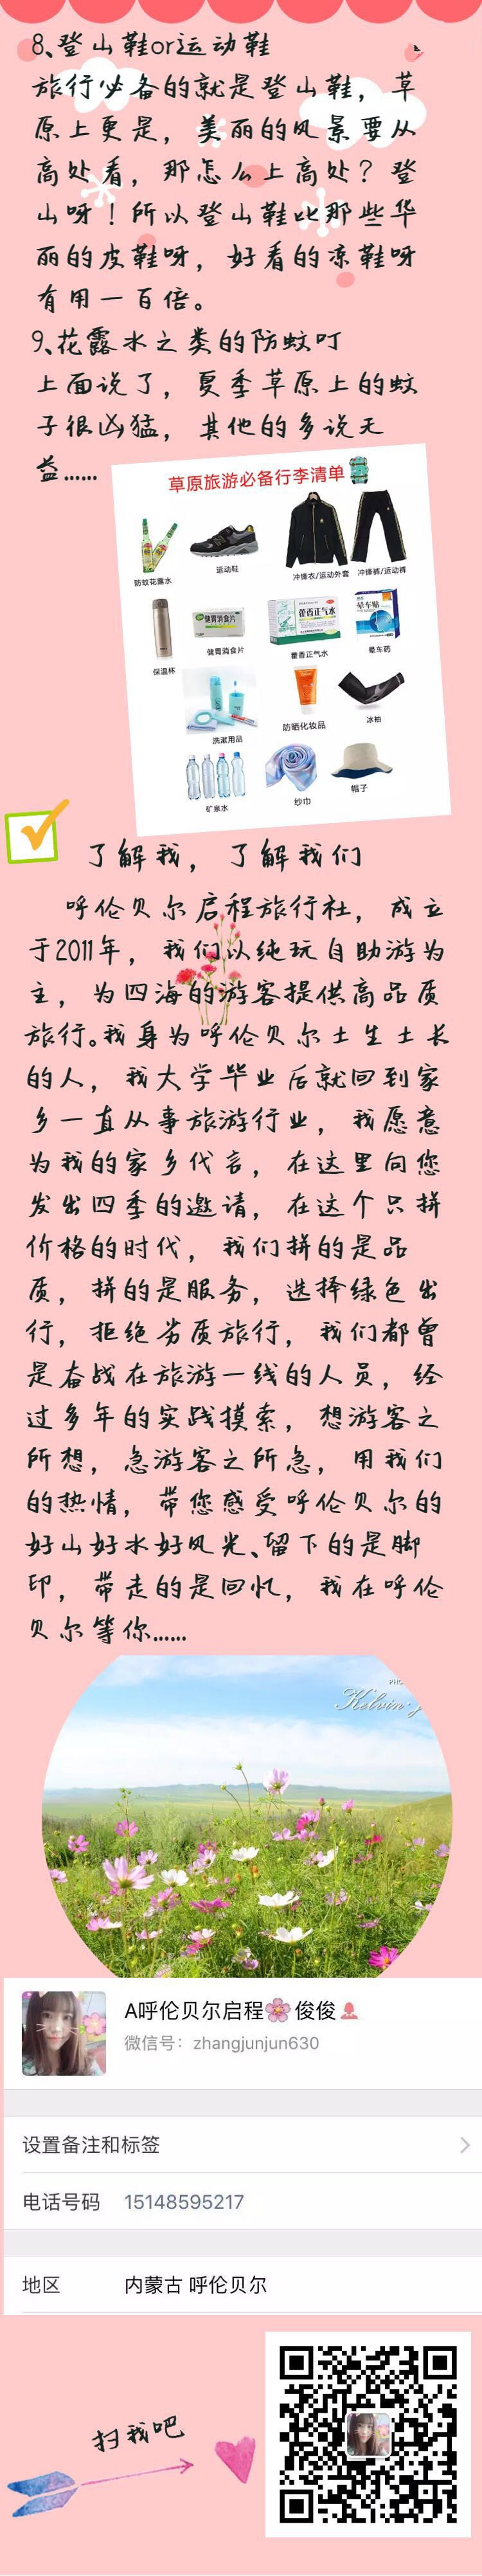 8、登山鞋or运动鞋
旅行必备的就是登山鞋，草
原上更是，美丽的风景要从
高处看，那怎么上高处？登
山呀！所以登山鞋比那些华
丽的皮鞋呀，好看的凉鞋呀
有用一百倍。
9、花露水之类的防蚊叮
上面说了，夏季草原上的蚊
子很凶猛，其他的多说无
益……
草原旅游必备行李清单
防蚊花露水
运动鞋
冲锋衣/运动外套
冲锋裤/运动裤
保温杯
健胃消食片
健胃消食片
藿香正气水
藿香正气水
晕车贴
晕车药
洗漱用品
防晒化妆品
冰袖
矿泉水
纱巾
帽子
了解我，了解我们
呼伦贝尔启程旅行社，成立
于2011年，我们以纯玩自助游为
主，为四海的游客提供高品质
旅行。我身为呼伦贝尔土生土长
的人，我大学毕业后就回到家
乡一直从事旅游行业，我愿意
为我的家乡代言，在这里向您
发出四季的邀请，在这个只拼
价格的时代，我们拼的是品
质，拼的是服务，选择绿色出
行，拒绝劣质旅行，我们都曾
是奋战在旅游一线的人员，经
过多年的实践摸索，想游客之
所想，急游客之所急，用我们
的热情，带您感受呼伦贝尔的
好山好水好风光、留下的是脚
印，带走的是回忆，我在呼伦
贝尔等你……
PHO
Kelvin·
A呼伦贝尔启程🌸俊俊
微信号：zhangjunjun630
设置备注和标签
电话号码 15148595217
地区 内蒙古 呼伦贝尔
扫我吧